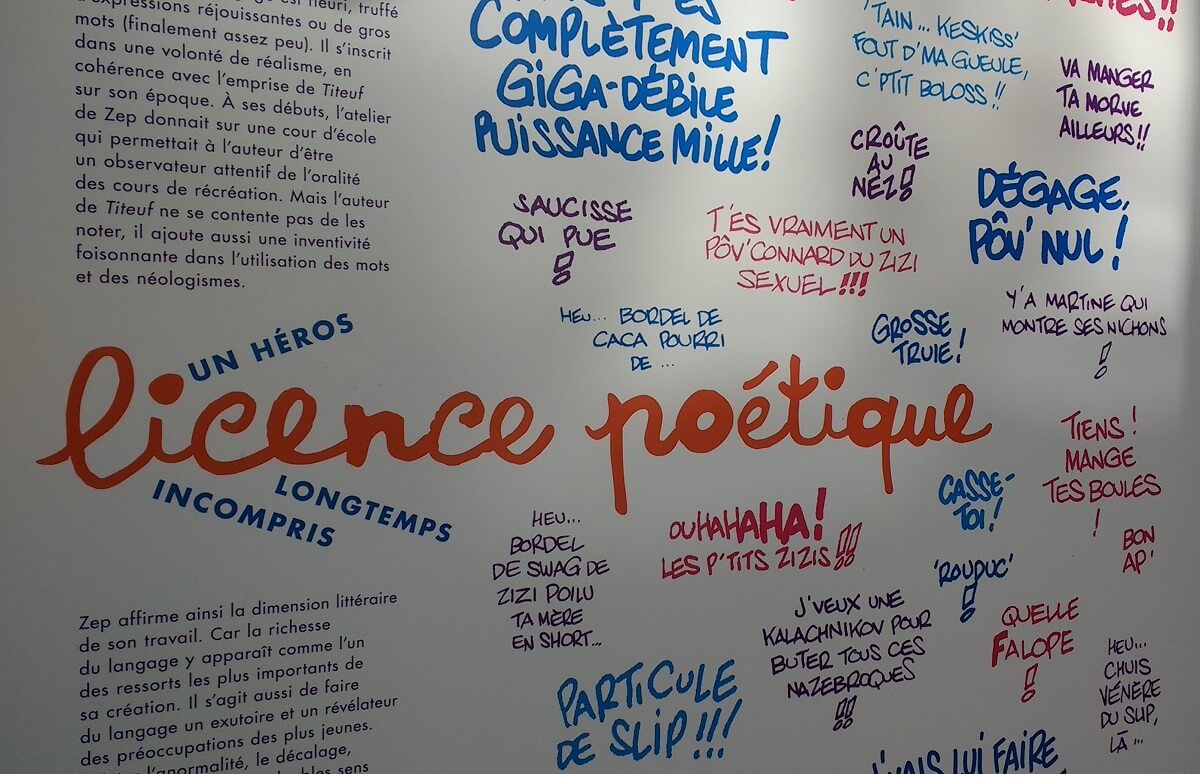 est fleuri, truffé
d'expressions réjouissantes ou de gros
mots (finalement assez peu). Il s'inscrit
dans une volonté de réalisme, en
cohérence avec l'emprise de Titeuf
sur son époque. À ses débuts, l'atelier
de Zep donnait sur une cour d'école
qui permettait à l'auteur d'être
un observateur attentif de l'oralité
des cours de récréation. Mais l'auteur
de Titeuf ne se contente pas de les
noter, il ajoute aussi une inventivité
foisonnante dans l'utilisation des mots
et des néologismes.
UN HÉROS
licence poétique
LONGTEMPS
INCOMPRIS
Zep affirme ainsi la dimension littéraire
de son travail. Car la richesse
du langage y apparaît comme l'un
des ressorts les plus importants de
sa création. Il s'agit aussi de faire
du langage un exutoire et un révélateur
des préoccupations des plus jeunes.
l'anormalité, le décalage,
sens
ES
COMPLÈTEMENT
GIGA-DÉBILE
PUISSANCE MILLE!
'TAIN... KESKISS'
FOUT D'MA GUEULE,
C'PTIT BOLOSS!!
VA MANGER
TA MORVE
AILLEURS!!
CROÛTE
AU
NEZ!
SAUCISSE
QUI PUE
!
T'ES VRAIMENT UN
PÔV'CONNARD DU ZIZI
SEXUEL!!!
DÉGAGE,
PÔV' NUL!
HEU... BORDEL DE
CACA POURRI
DE ...
GROSSE
TRUIE!
Y'A MARTINE QUI
MONTRE SES NICHONS
!
TIENS!
MANGE
TES BOULES
!
BON
AP'
CASSE-
TOI!
OUHAHAHA!
LES P'TITS ZIZIS!!
HEU...
BORDEL
DE SWAG DE
ZIZI POILU
TA MÈRE
EN SHORT...
'ROUDUC'
!
J'VEUX UNE
KALACHNIKOV POUR
BUTER TOUS CES
NAZEBROQUES
!!
QUELLE
FALOPE
!
HEU...
CHUIS
VÉNÈRE
DU SLIP,
LÀ...
PARTICULE
DE SLIP!!!
J'VAIS LUI FAIRE